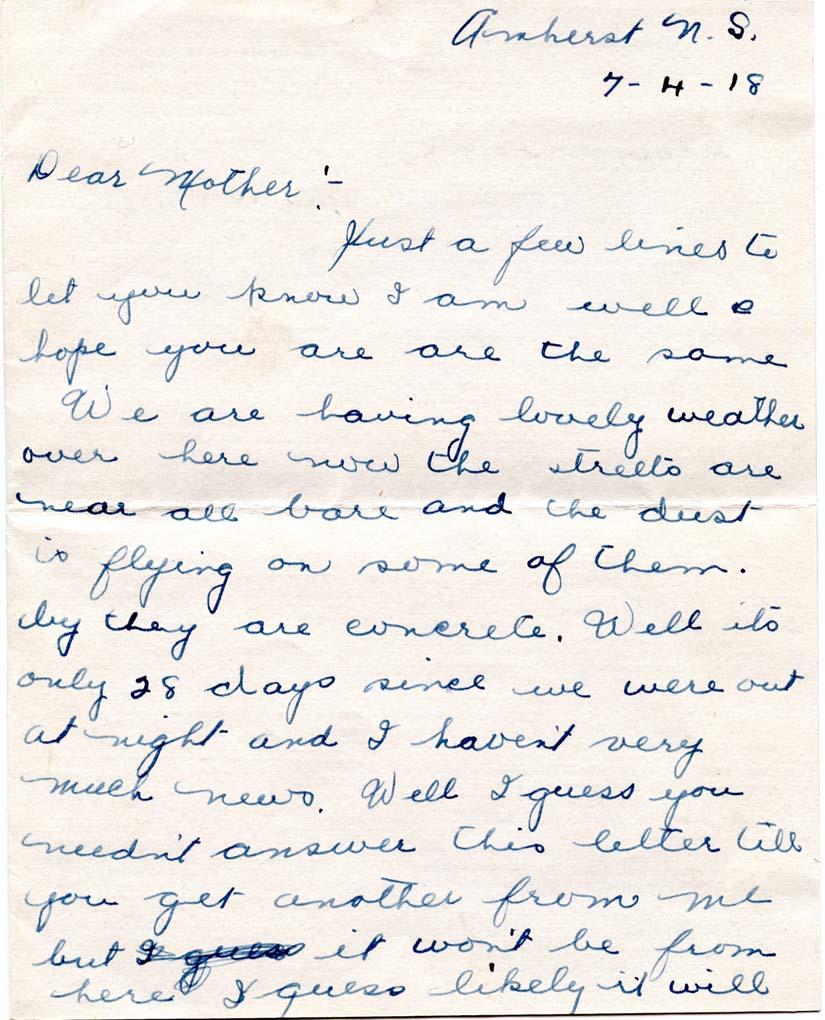 Amherst N. S.
7-4-18
Dear Mother :-
Just a few lines to
let you know I am well &
hope you are are the same
We are having lovely weather
over here now the streets are
near all bare and the dust
is flying on some of them.
by they are concrete. Well its
only 28 days since we were out
at night and I haven't very
much news. Well I guess you
needn't answer this letter till
you get another from me
but I guess it won't be from
here I guess likely it will